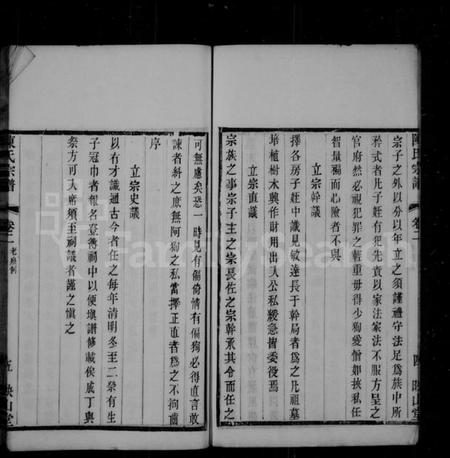 陳氏宗譜 卷二 四 映山堂
宗子之外以分以年立之須謹禮守法足爲族中所
矜式者凡子姪有犯先責以家法家法不服方呈之
官府然必視犯罪之輕重毋得少狥愛憎如挾私任
智量褊而心險者不與
立宗幹議
擇各房子姪中識見敏達長于幹局者爲之凡祖墓
培植樹木興作財用出入公私緩急皆委後焉
立宗直議
宗族之事宗子主之宗長佐之宗幹承其令而任之
可無慮矣恐一時見有偏倚情有偏狥必得直言敢
諫者斜之庶無阿狥之私當擇正直者爲之不拘齒
序
立宗史議
以有才識通古今者任之每年清明冬至二祭有生
子冠巾者報名登簿祠中以便填譜修葺俟歲丁與
祭方可入席須至祠議者謹之慎之
陳氏宗譜 卷二 老 五 映山堂